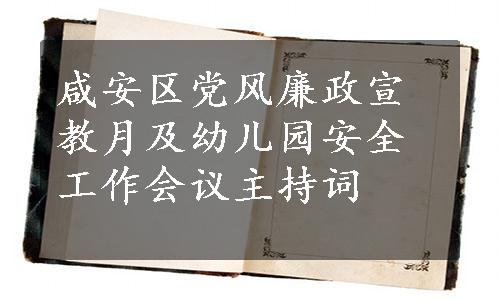 咸安区党风廉政宣
教月及幼儿园安全
工作会议主持词